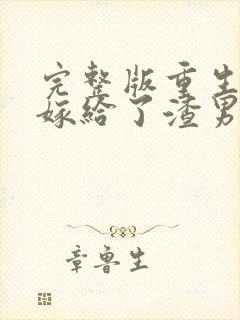 完整版重生
嫁给了渣男
章鲁生